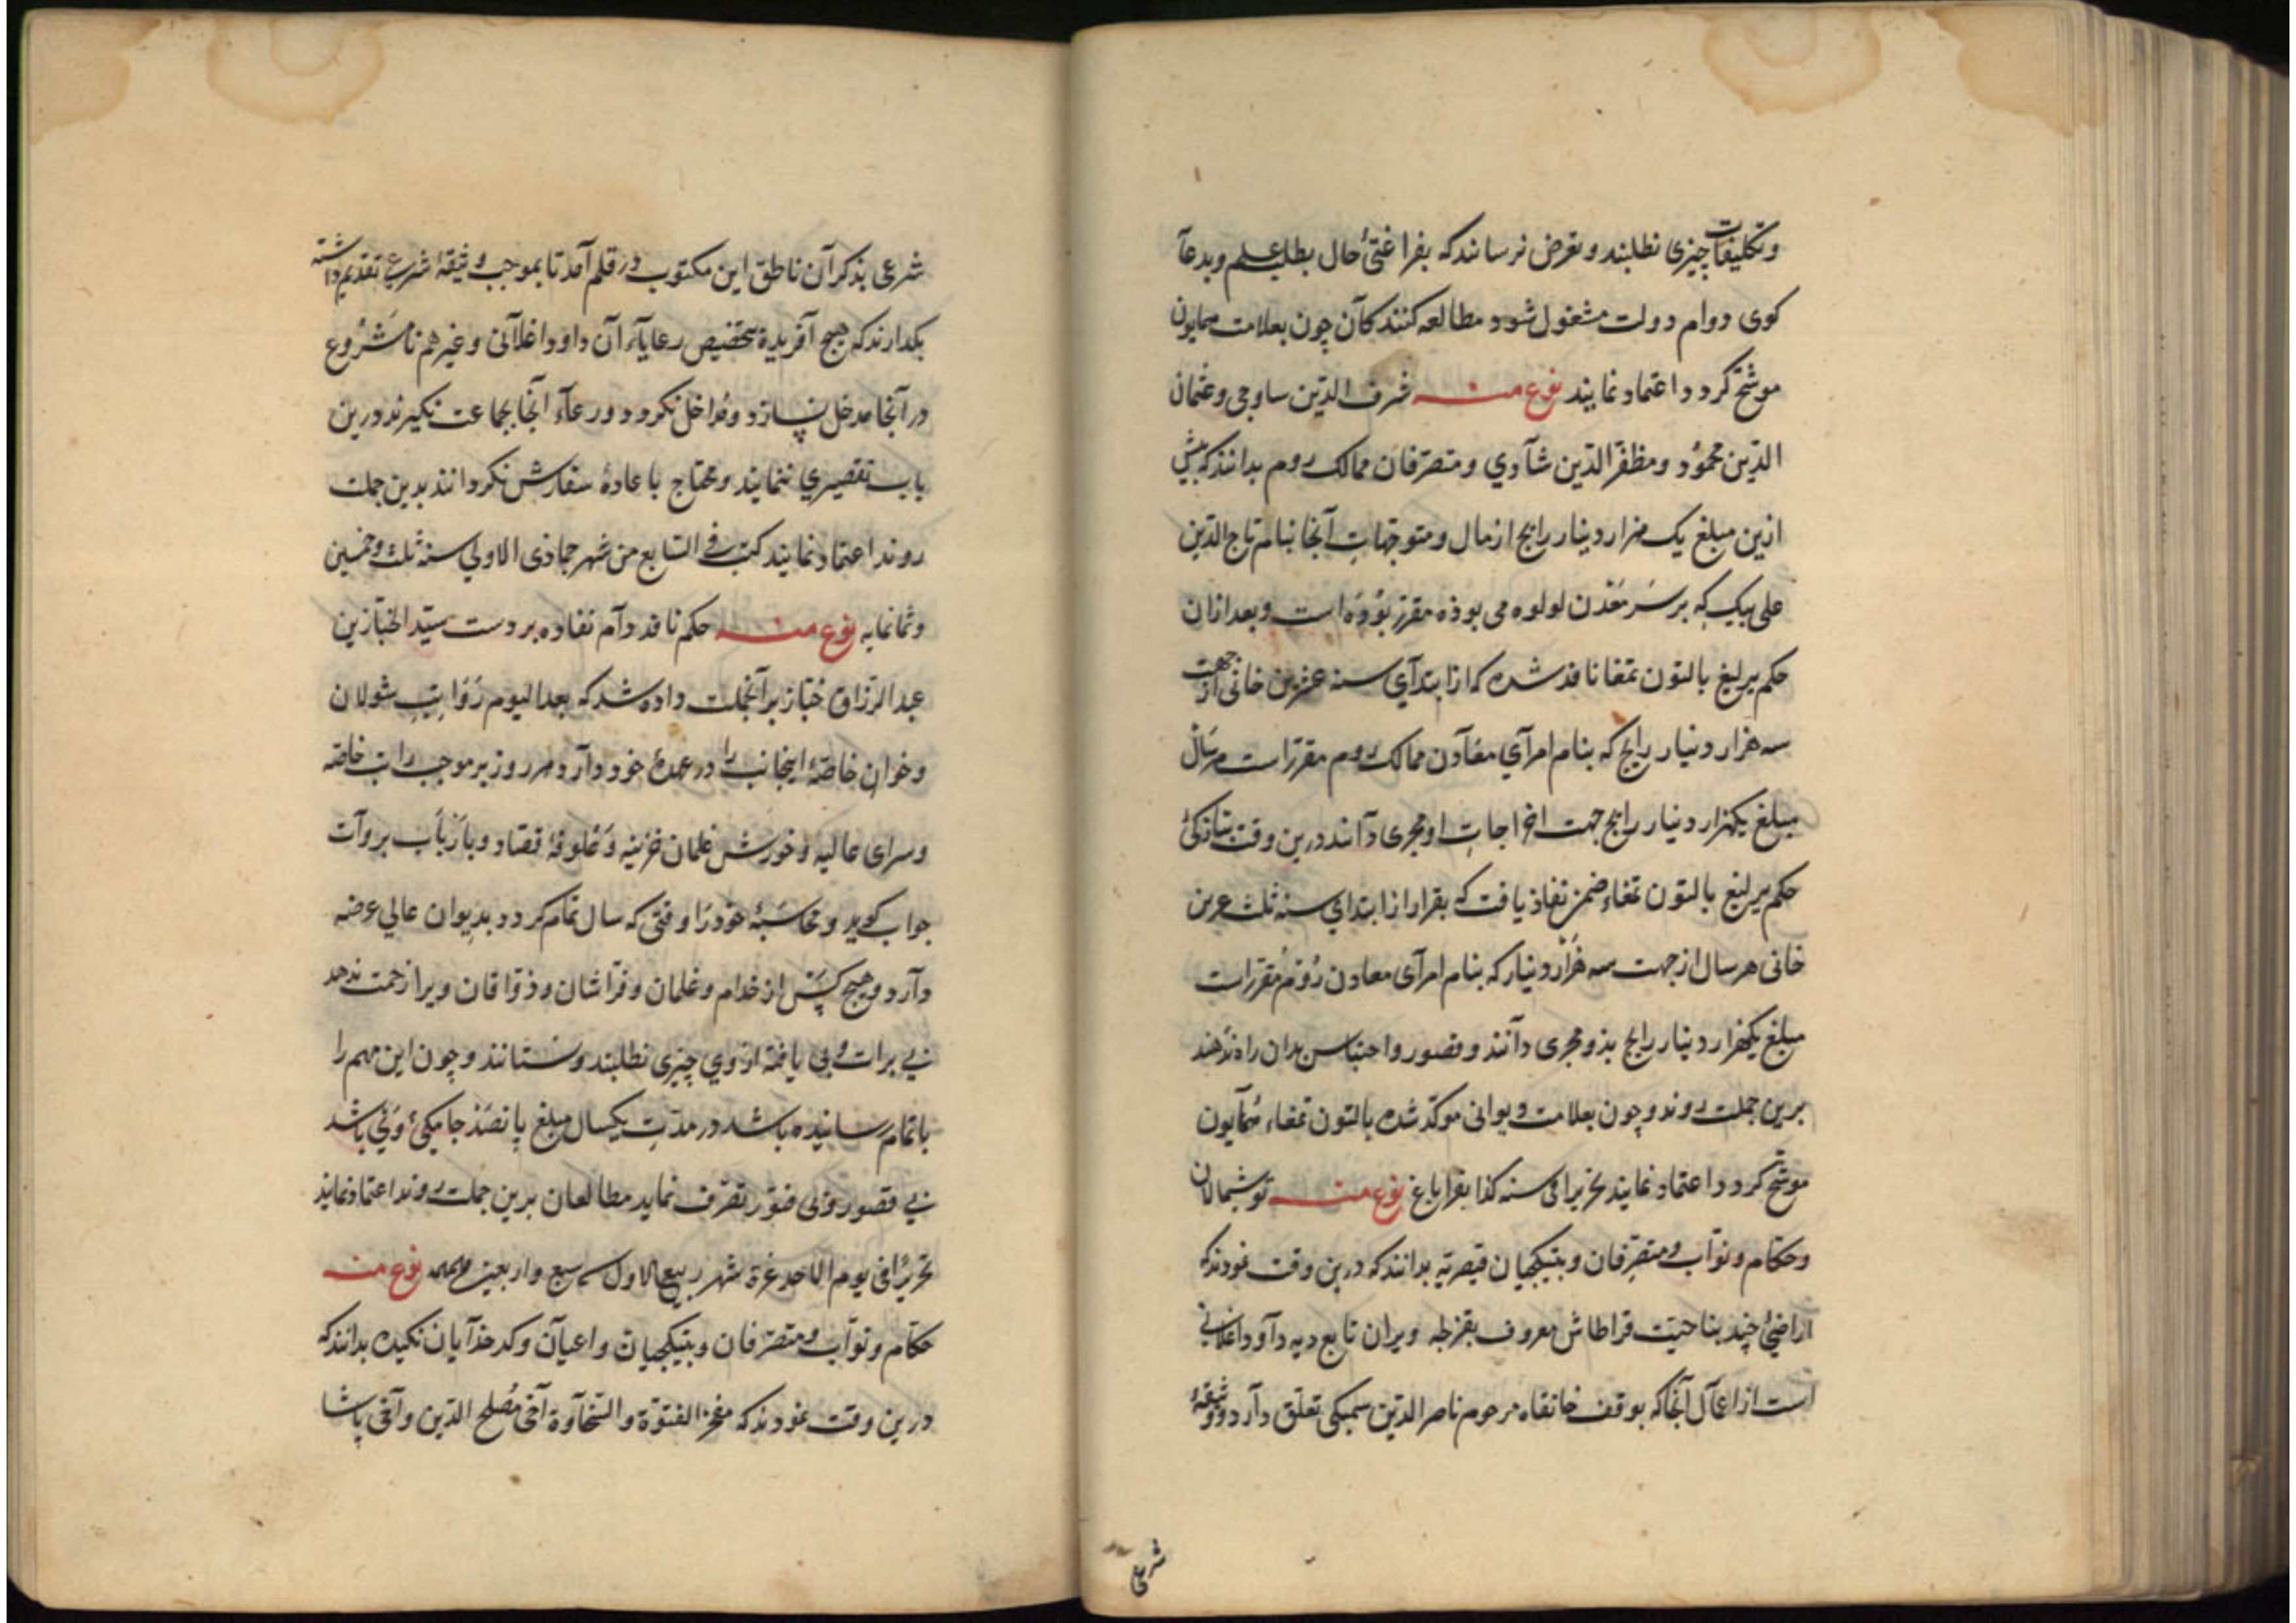 وتکلیفات چیزی نطلبند و تعرض نرسانند که بفراغتیٔ حال بطلب علم وبدعآ
کوی دوام دولت مشغول شود مطالعه کنند کآن چون بعلامت همایون
موشّح کردد اعتماد نمایند نوع منه شرف الدّین ساوجی وعثمان
الدّین محمُود ومظفّر الدّین شآدي ومتصرّفان ممالک روم بدانند که پیش
ازین مبلغ یک هزار دینار رایج از مال ومتوجّهاتِ آنجا بنام تاج الدّین
علی بیک که بر سَر مَعْدن لولوه می بوذه مقرّر بوُدَه است وبعد ازان
حکم یرلیغ بالتون تمغا نافد شده که از ابتدآي سنه عشرین خانی از جهت
سه هزار دینار رایج که بنام امرآي معآدن ممالک روم مقرّرست هر سَال
مبلغ یکهزار دینار رایج جهت اخراجاتِ او مجری دآنند درین وقت بتازکیٔ
حکم یرلیغ بالتون تمغاء ضمز نفاذ یافت که بقرار از ابتدای سنه ثلث عرین
خانی هر سال از جهت سه هَزار دینار که بنام امرآی معادن رُوْم مُقرّرست
مبلغ یکهزار دینار رایج بذو مجری دآنند وقصور واحتباس بدان راه ندهند
برین جملت روند وچون بعلامت دیوانی موکّد شده بالتون تمغاء هُمآیون
موشّح کردد اعتماد نمایند تحریرا فی سنه کذا بقراباغ نوع منه توشمالان
وحکّام ونوّاب ومتصرّفان وبیتکجیان قیصریّه بدانند که درین وقت نمودند که
اراضیٔ چند بناحیت قراطاش معروف بقزطه ویران تابع دیه دآود اغلانی
است از اعمآل آنجا که بوقف خانقاه مرحوم ناصر الدّین سمیکی تعلّق دآرد ووثیقهٔ
شرعی
شرعی بذکر آن ناطق این مکتوب در قلم آمد تا بموجب وثیقهٔ شرعی تقدیم داشته
بکدارند که هیچ آفریدهٔ بتخصیص رعایآء آن داود اغلآنی وغیرهم نامَشرُوع
در آنجا مدخل نپسازد ومُداخل نکردد ورعآء آنجا بجماعت نکیرند درین
باب تقصیري ننمایند ومحتاج باعادهٔ سفارش نکردانند بدین جملت
روند اعتماد نمایند کتب فی السّابع من شهر جماذی الاولي سنه ثلث وخمسین
وثمانمایه نوع منه حکم نافد دآم نفاده بر دست سیّد الخبّازین
عبد الرّزاق خبّاز برآنجملت داده شد که بعد الیوم رَوَاتِب شولان
وخوانِ خاصّهٔ اینجانب را در عهدهٔ خود دآرد هر روز بر موجب راتب خاصّه
وسرای عالیه وخورش غلمان خزینه وعَلوفهٔ قصّاد وبازباب بروآت
جواب کوید ومحاسَبهٔ خودرَا وقتی که سال تمام کردد بدیوان عالي عرضه
دآرد وهیچ کسَ از خدام وغلمان وفرّاشان وذوّاقان ویرا زحمت ندهد
بی برات وبی یافته ازوي چیزی نطلبند ونستانند وچون این مهم را
باتمام رسانیده باشد در مدّتِ یکسال مبلغ پانصَد جامکیٔ وَیْ باشد
بی قصور وبی فتور تصرّف نماید مطالعان برین جملت روند اعتماد نمایند
تحریرًا فی یوم الاحد غرة شهر ربیع الاول سنه سبع واربعین وثمانمایه نوع منه
حکّام ونوّاب ومتصرّفان وبیتکجیان واعیآن وکدخدآیان نکیده بدانند که
درین وقت نمودند که مفخر الفتوّة والسّخآوة آخی مُصلح الدّین وآخی پاشا